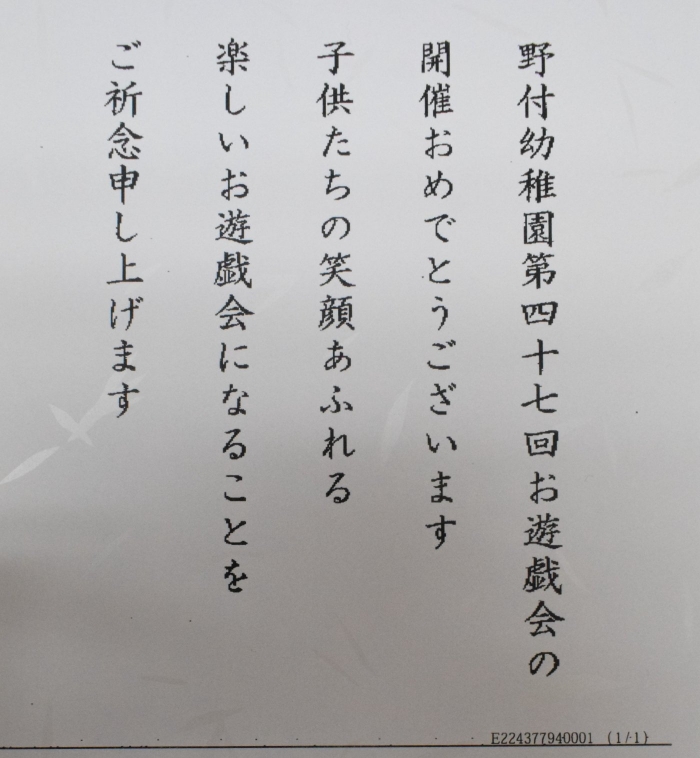 野付幼稚園第四十七回お遊戯会の
開催おめでとうございます
子供たちの笑顔あふれる
楽しいお遊戯会になることを
ご祈念申し上げます
E224377940001 (1/1)